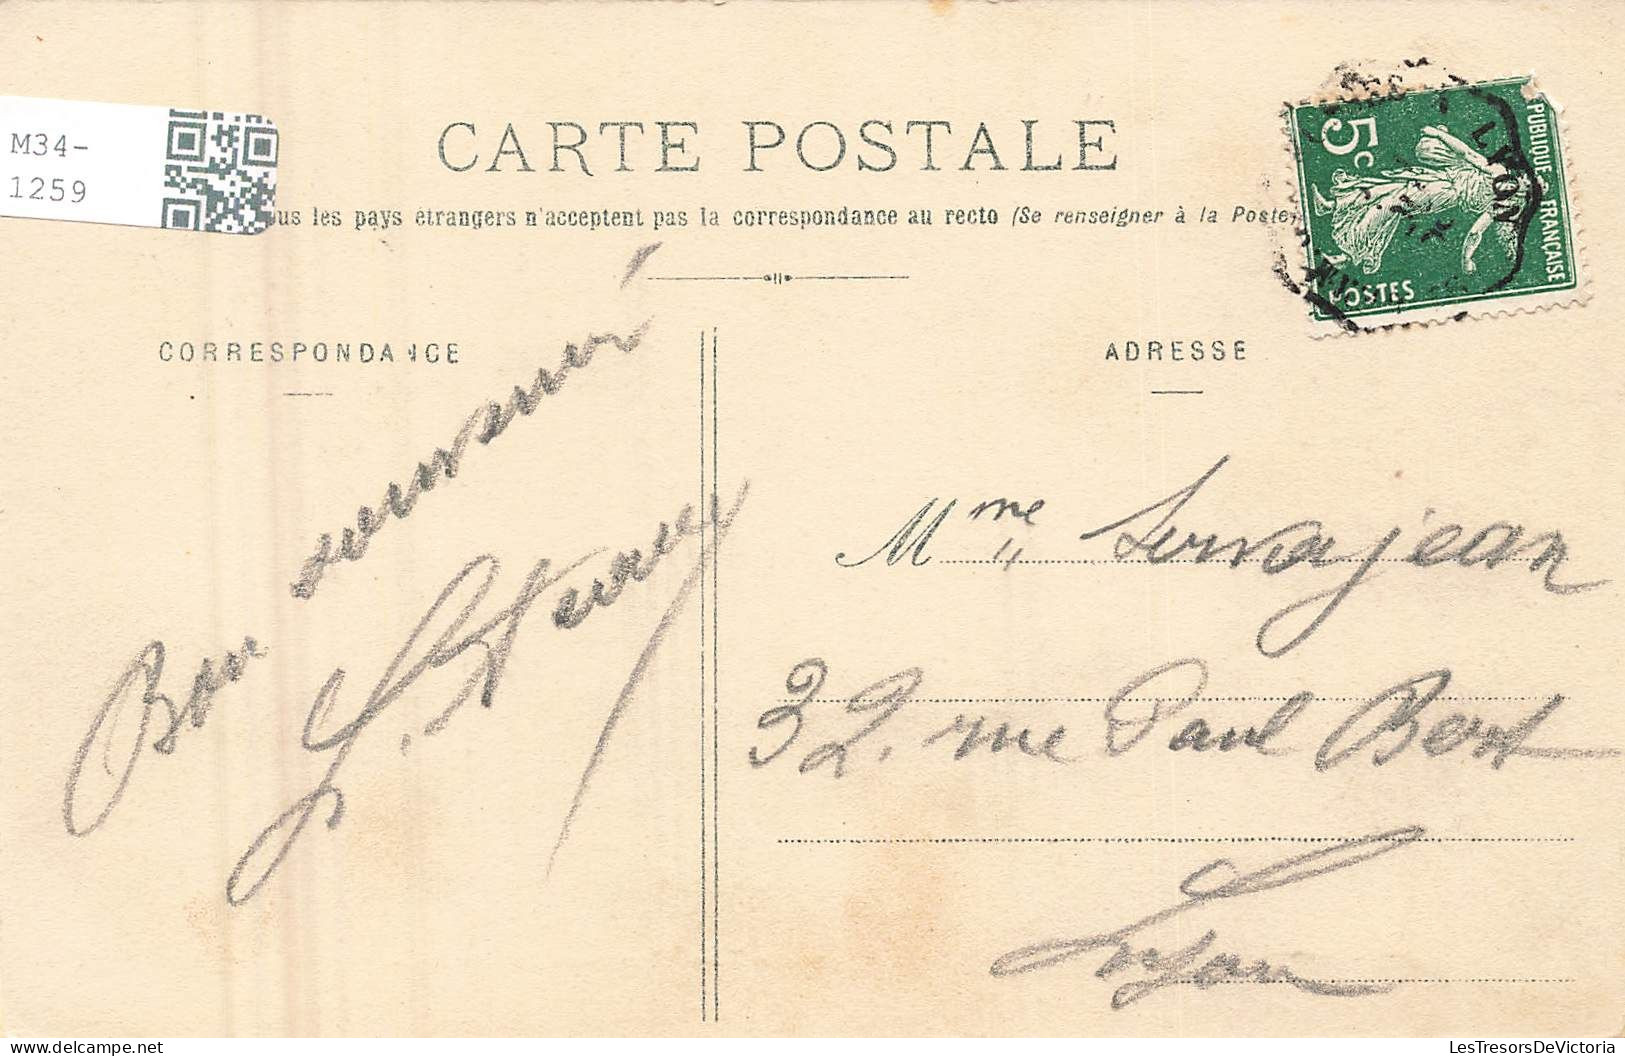 M34-
1259
CARTE POSTALE
ous les pays étrangers n'acceptent pas la correspondance au recto (Se renseigner à la Poste)
5c
PUBLIQUE FRANÇAISE
POSTES
LYON
CORRESPONDANCE
ADRESSE
Bon
souvenir
Mme Servajean
32. rue Paul Bert
Lyon
LesTresorsDeVictoria